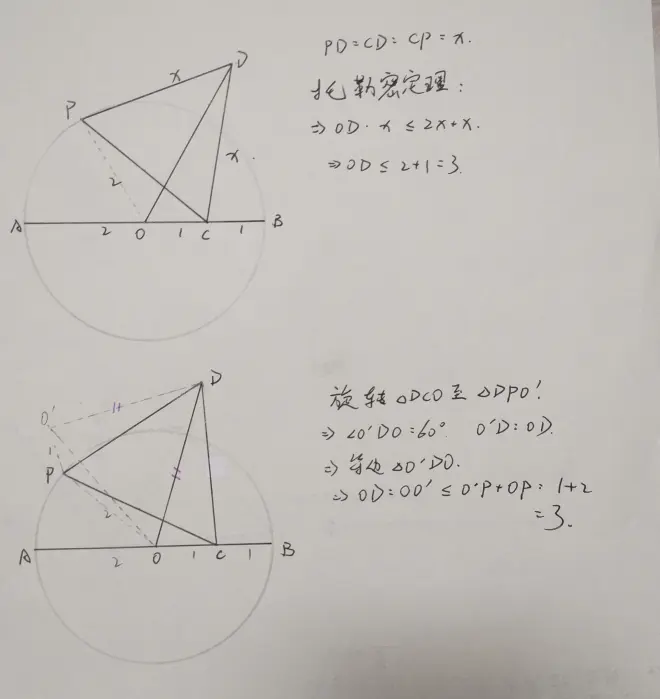 D
x
P
x
2
A
2
O
1
C
1
B
PD=CD=CP=x.
托勒密定理:
⇒ OD·x ≤ 2x+x.
⇒ OD ≤ 2+1=3.
D
O'
1
1
P
2
A
2
O
1
C
1
B
旋转△DCO至△DPO'.
⇒ ∠O'DO=60° O'D=OD.
⇒ 等边△O'DO.
⇒ OD=OO' ≤ O'P+OP= 1+2
=3.